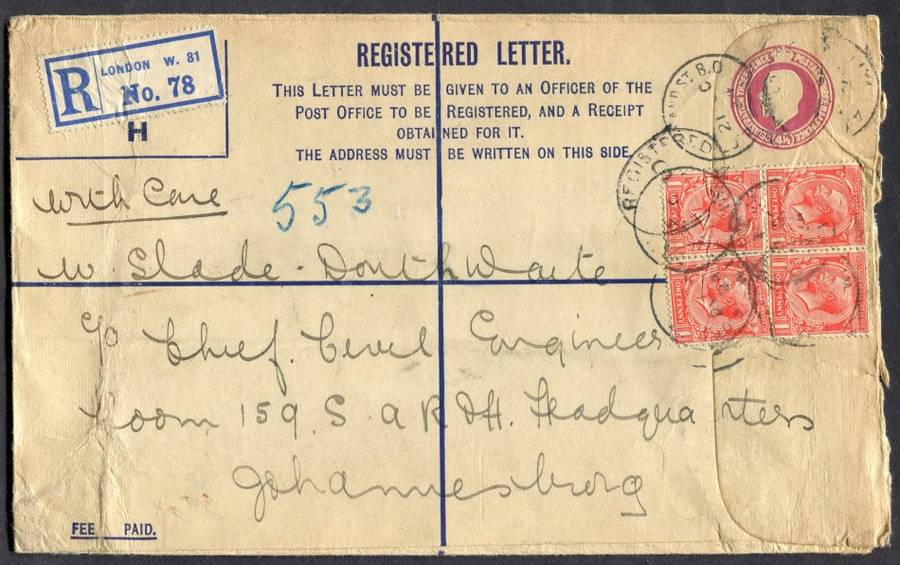 REGISTERED LETTER.
THIS LETTER MUST BE GIVEN TO AN OFFICER OF THE
POST OFFICE TO BE REGISTERED, AND A RECEIPT
OBTAINED FOR IT.
THE ADDRESS MUST BE WRITTEN ON THIS SIDE.
R
LONDON W. 81
No. 78
H
With Care
553
W. Slade-Donthwaite
c/o Chief Civil Engineer
Room 159. S A R & H. Headquarters
Johannesburg
FEE PAID.
REGISTERED
ONE PENNY
ONE PENNY
ONE PENNY
ONE PENNY